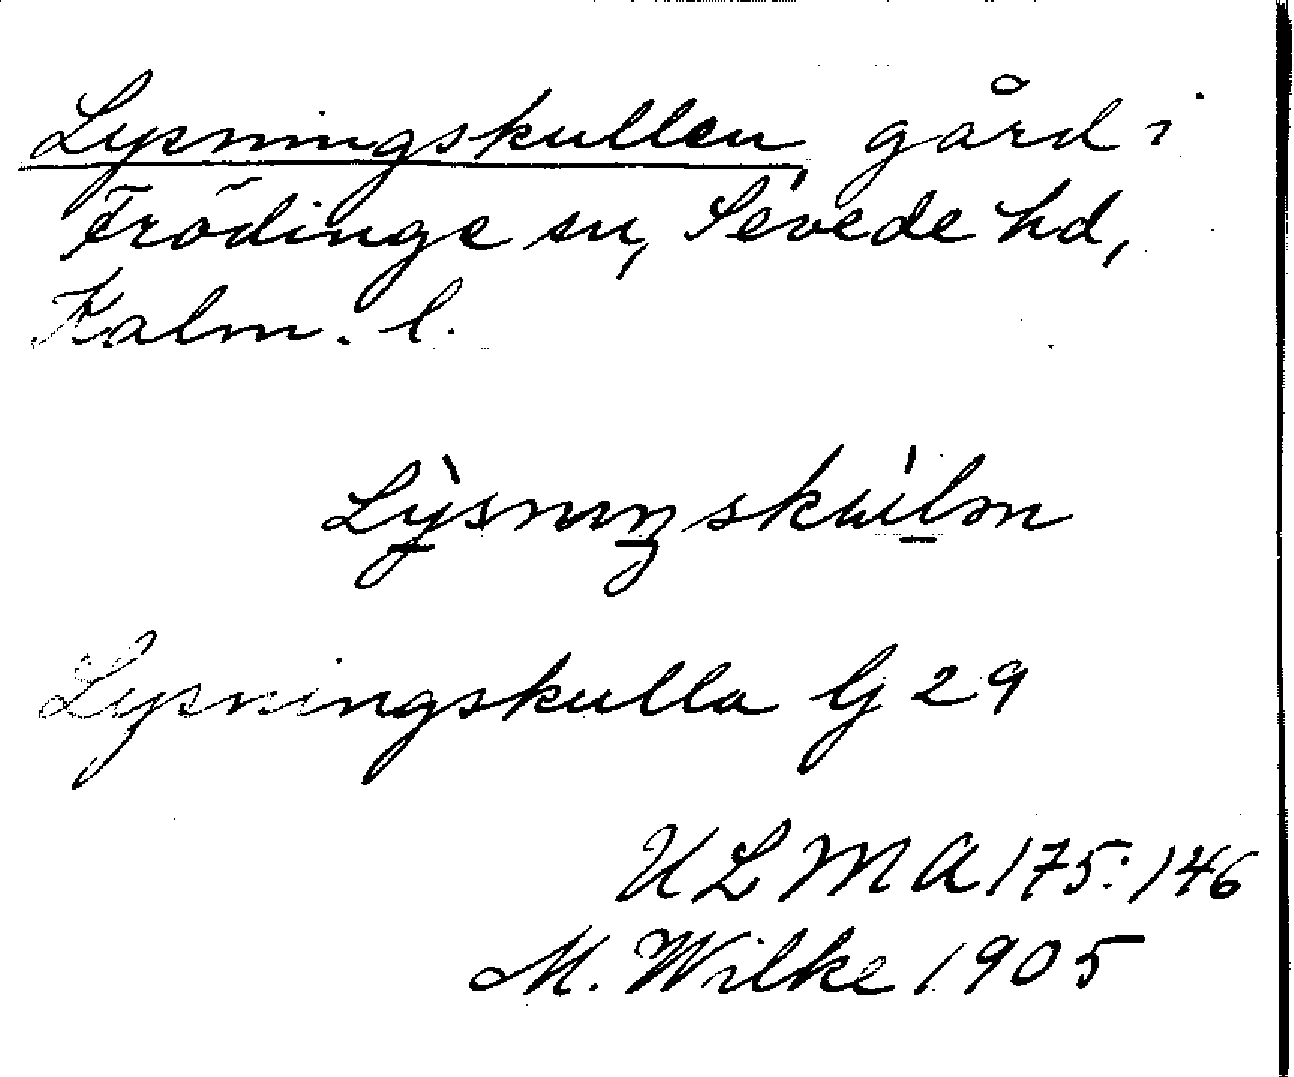 Lysningskullen, gård i
Frödinge sn, Sevede hd,
Kalm. l.
Lysningskulla G 29
ULMA 175:146
M. Wilke 1905